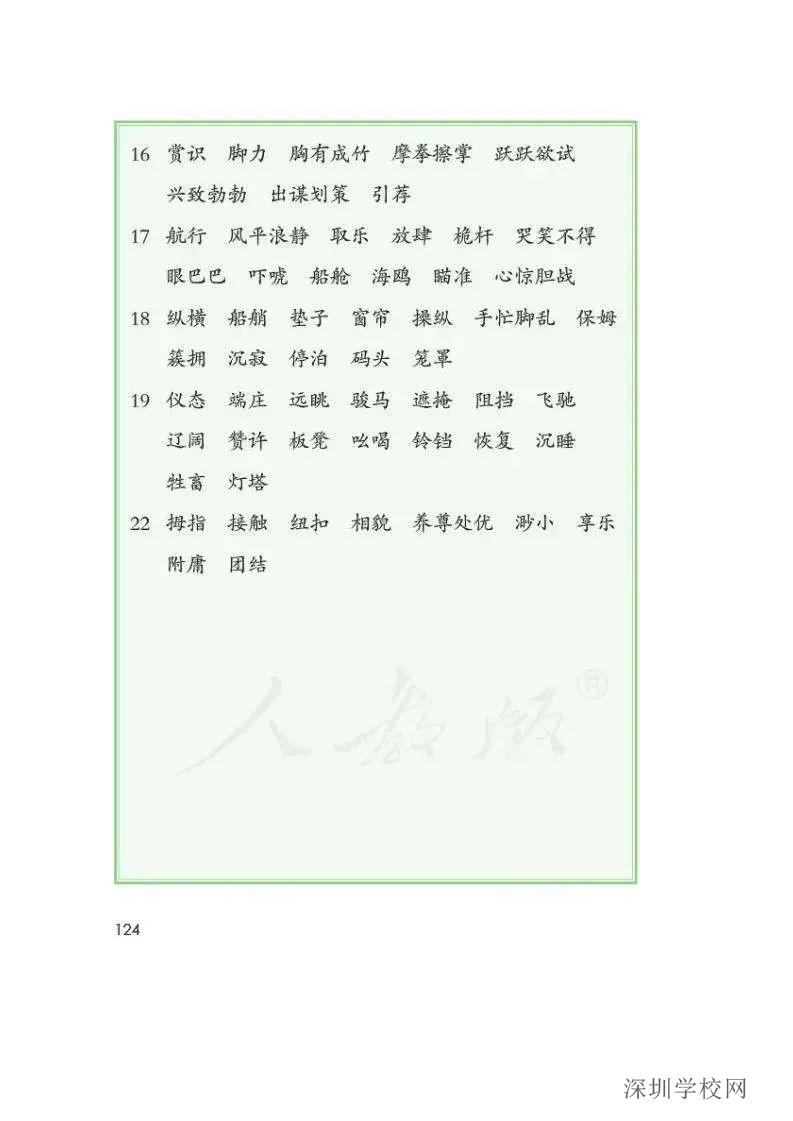 16 赏识 脚力 胸有成竹 摩拳擦掌 跃跃欲试
兴致勃勃 出谋划策 引荐
17 航行 风平浪静 取乐 放肆 桅杆 哭笑不得
眼巴巴 吓唬 船舱 海鸥 瞄准 心惊胆战
18 纵横 船艄 垫子 窗帘 操纵 手忙脚乱 保姆
簇拥 沉寂 停泊 码头 笼罩
19 仪态 端庄 远眺 骏马 遮掩 阻挡 飞驰
辽阔 赞许 板凳 吆喝 铃铛 恢复 沉睡
牲畜 灯塔
22 拇指 接触 纽扣 相貌 养尊处优 渺小 享乐
附庸 团结
人教版®
124
深圳学校网